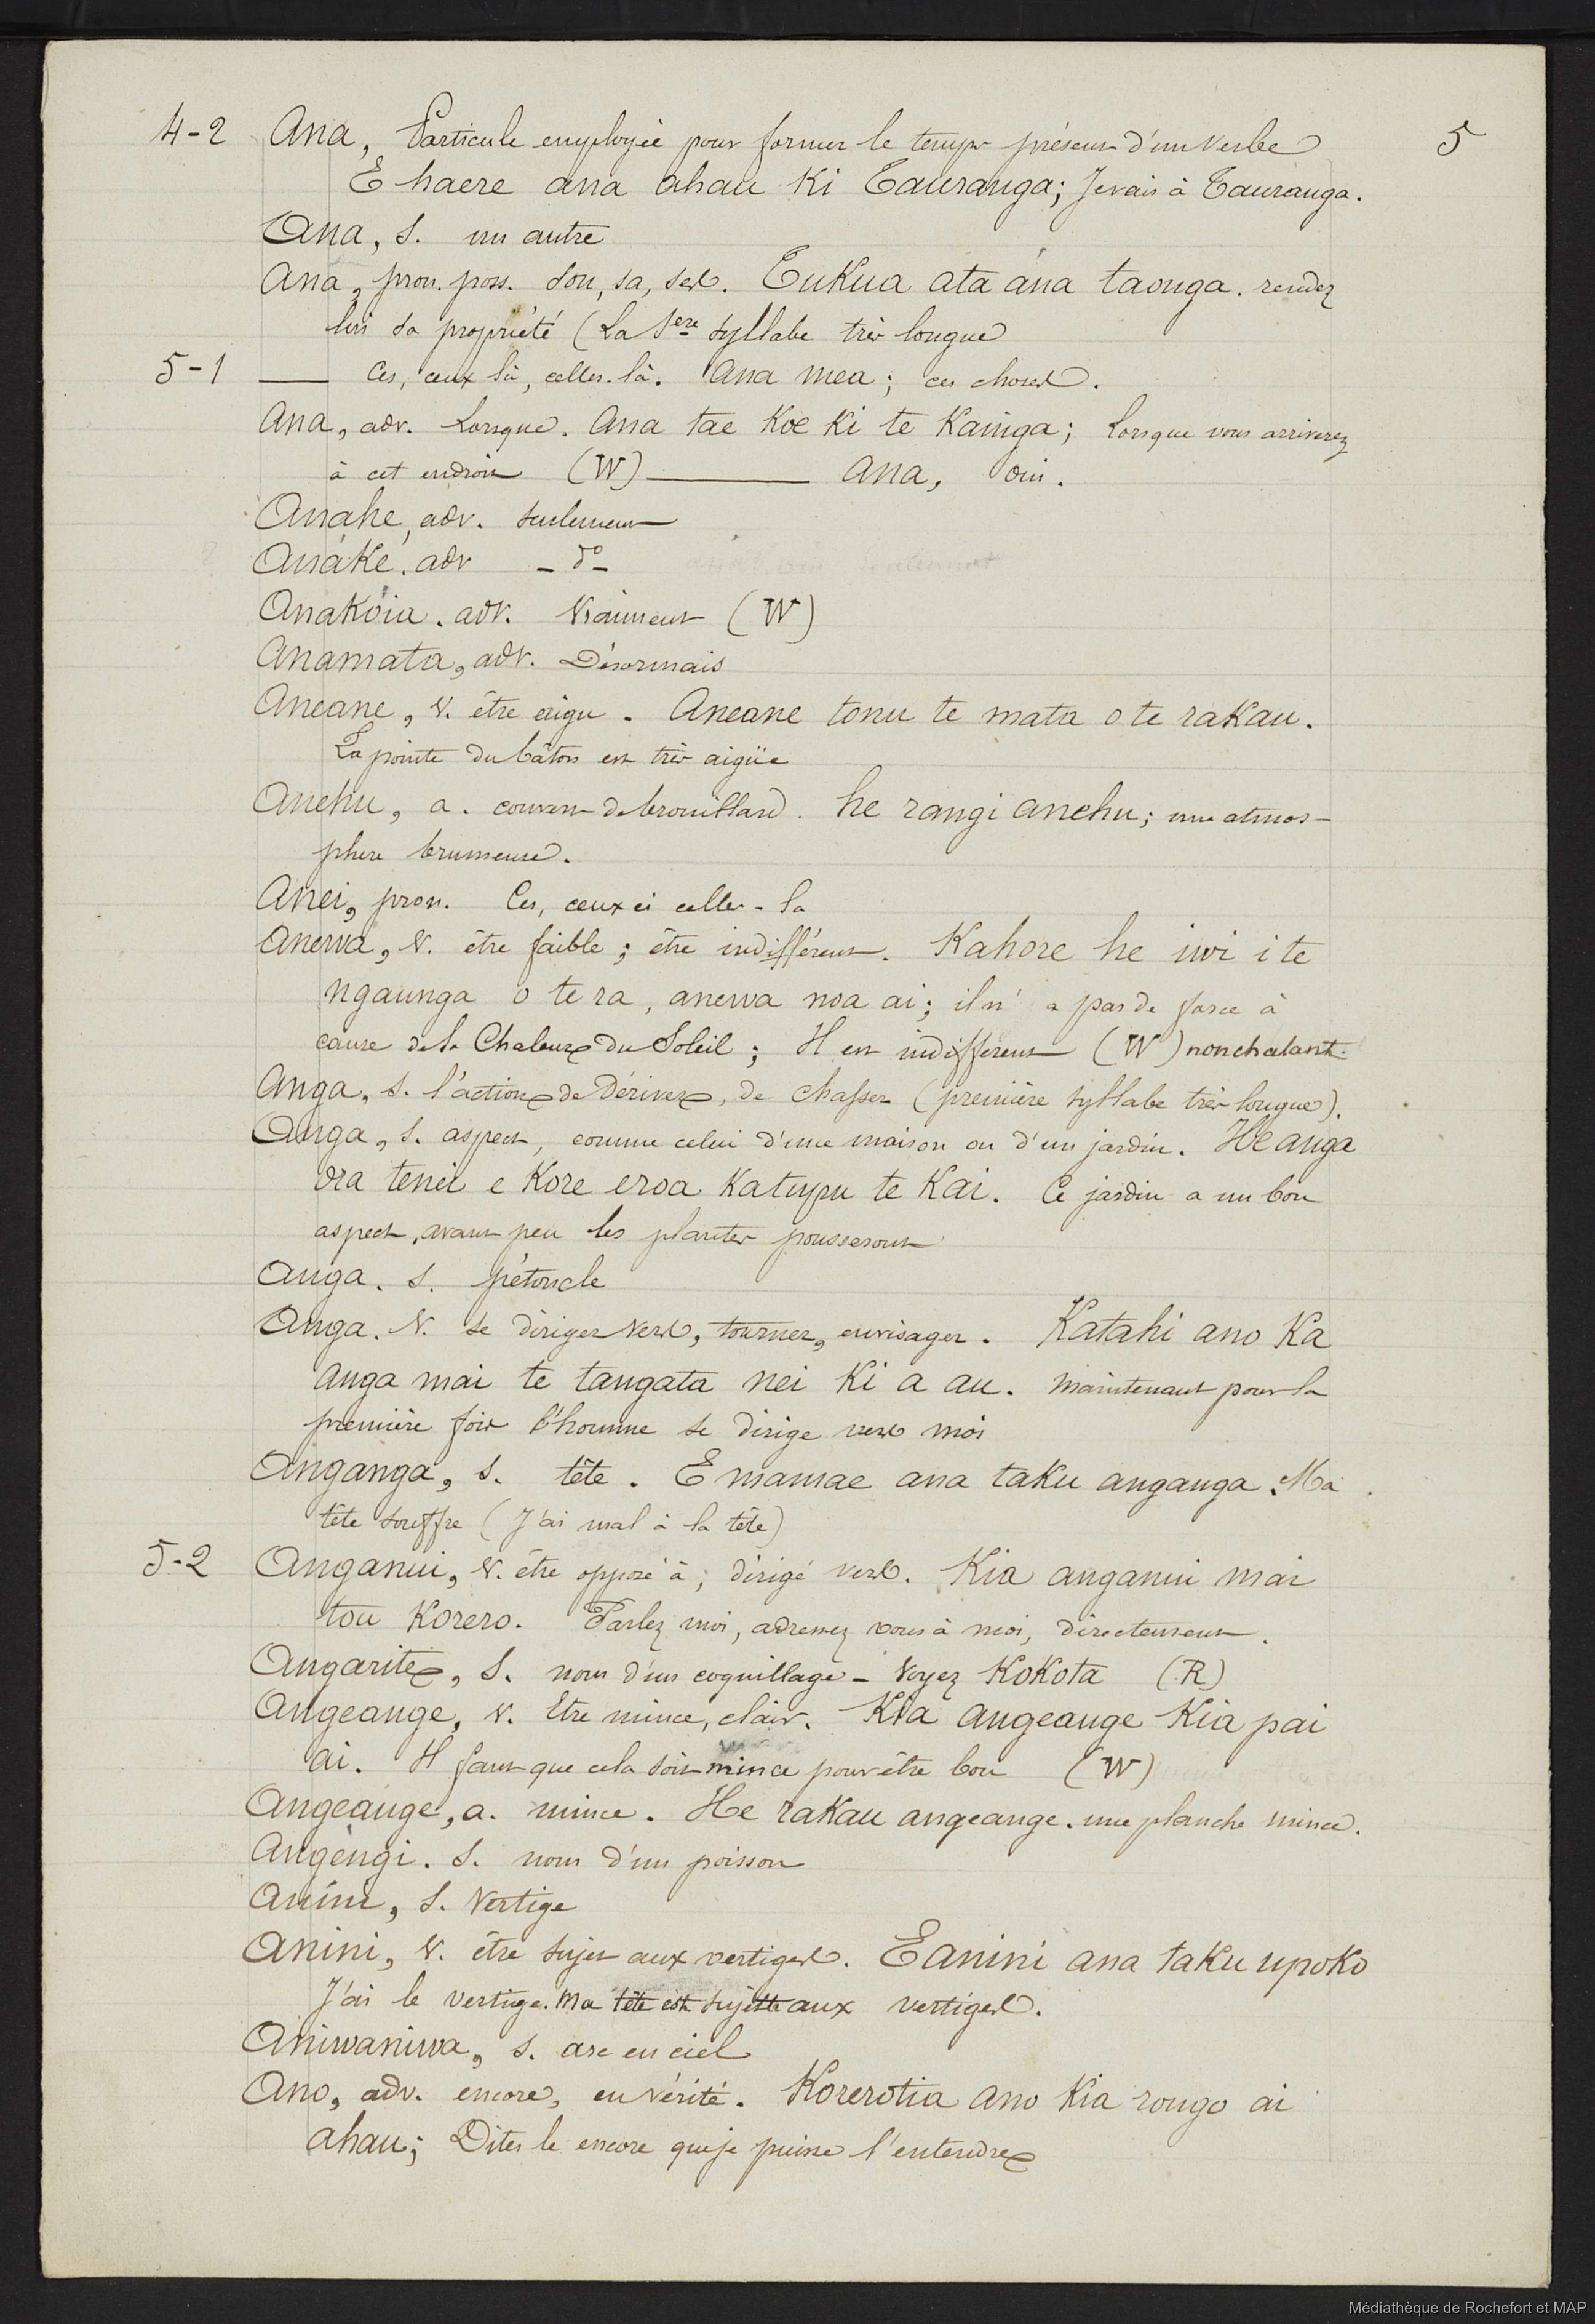 4-2 Ana, Particule employée pour former le temps présent d'un verbe 5
E haere ana ahau ki Tauranga; Je vais à Tauranga.
Ana, s. un autre
Ana, pron. poss. Son, sa, ses. Tukua ata ána taonga. rendez
lui sa propriété (La 1ere syllabe très longue
5-1 —— Ces, ceux là, celles-là. Ana mea; ces choses.
Ana, adv. Lorsque. Ana tae koe ki te Kainga; Lorsque vous arriverez
à cet endroit (W) ——— Ana, oui.
Anahe, adv. seulement
Anáke, adv - do -
Anakoia. adv. Vraiment (W)
Anamata, adv. Désormais
Aneane, v. être aigu. Aneane tonu te mata o te rakau.
La pointe du bâton est très aigüe
Anehu, a. couvert de brouillard. he rangi anehu; une atmos-
phere brumeuse.
Anei, pron. Ces, ceux ci celles-la
Anewa, v. être faible; être indifférent. Kahore he iwi i te
ngaunga o te ra, anewa noa ai; il n'a pas de force à
cause de la Chaleur du Soleil; Il est indifferent (W) nonchalant.
Anga, s. l'action de dériver, de chasser (première syllabe très longue).
Anga, s. aspect, comme celui d'une maison ou d'un jardin. He anga
ora tenei e kore eroa katupu te kai. Ce jardin a un bon
aspect, avant peu les plantes pousseront
Anga. s. pétoncle
Anga. v. se diriger vers, tourner, envisager. Katahi ano ka
anga mai te tangata nei ki a au. Maintenant pour la
première fois l'homme se dirige vers moi
Anganga, s. tête. E mamae ana taku anganga. Ma
tête souffre (J'ai mal à la tête)
5-2 Anganui, v. être opposé à; dirigé vers. Kia anganui mai
tou korero. Parlez moi, adressez vous à moi, directement.
Angarite, s. nom d'un coquillage - Voyez Kokota (R)
Angeange, v. Etre mince, clair. Kia angeange kia pai
ai. Il faut que cela soit mince pour être bon (W)
Angeange, a. mince. He rakau angeange. une planche mince.
Angengi. s. nom d'un poisson
Aníni, s. Vertige
Anini, v. être sujet aux vertiges. E anini ana taku upoko
J'ai le vertige. Ma tête est sujette aux vertiges.
Aniwaniwa, s. arc en ciel
Ano, adv. encore, en vérité. Korerotia ano kia rongo ai
ahau; Dites le encore que je puisse l'entendre
Médiathèque de Rochefort et MAP